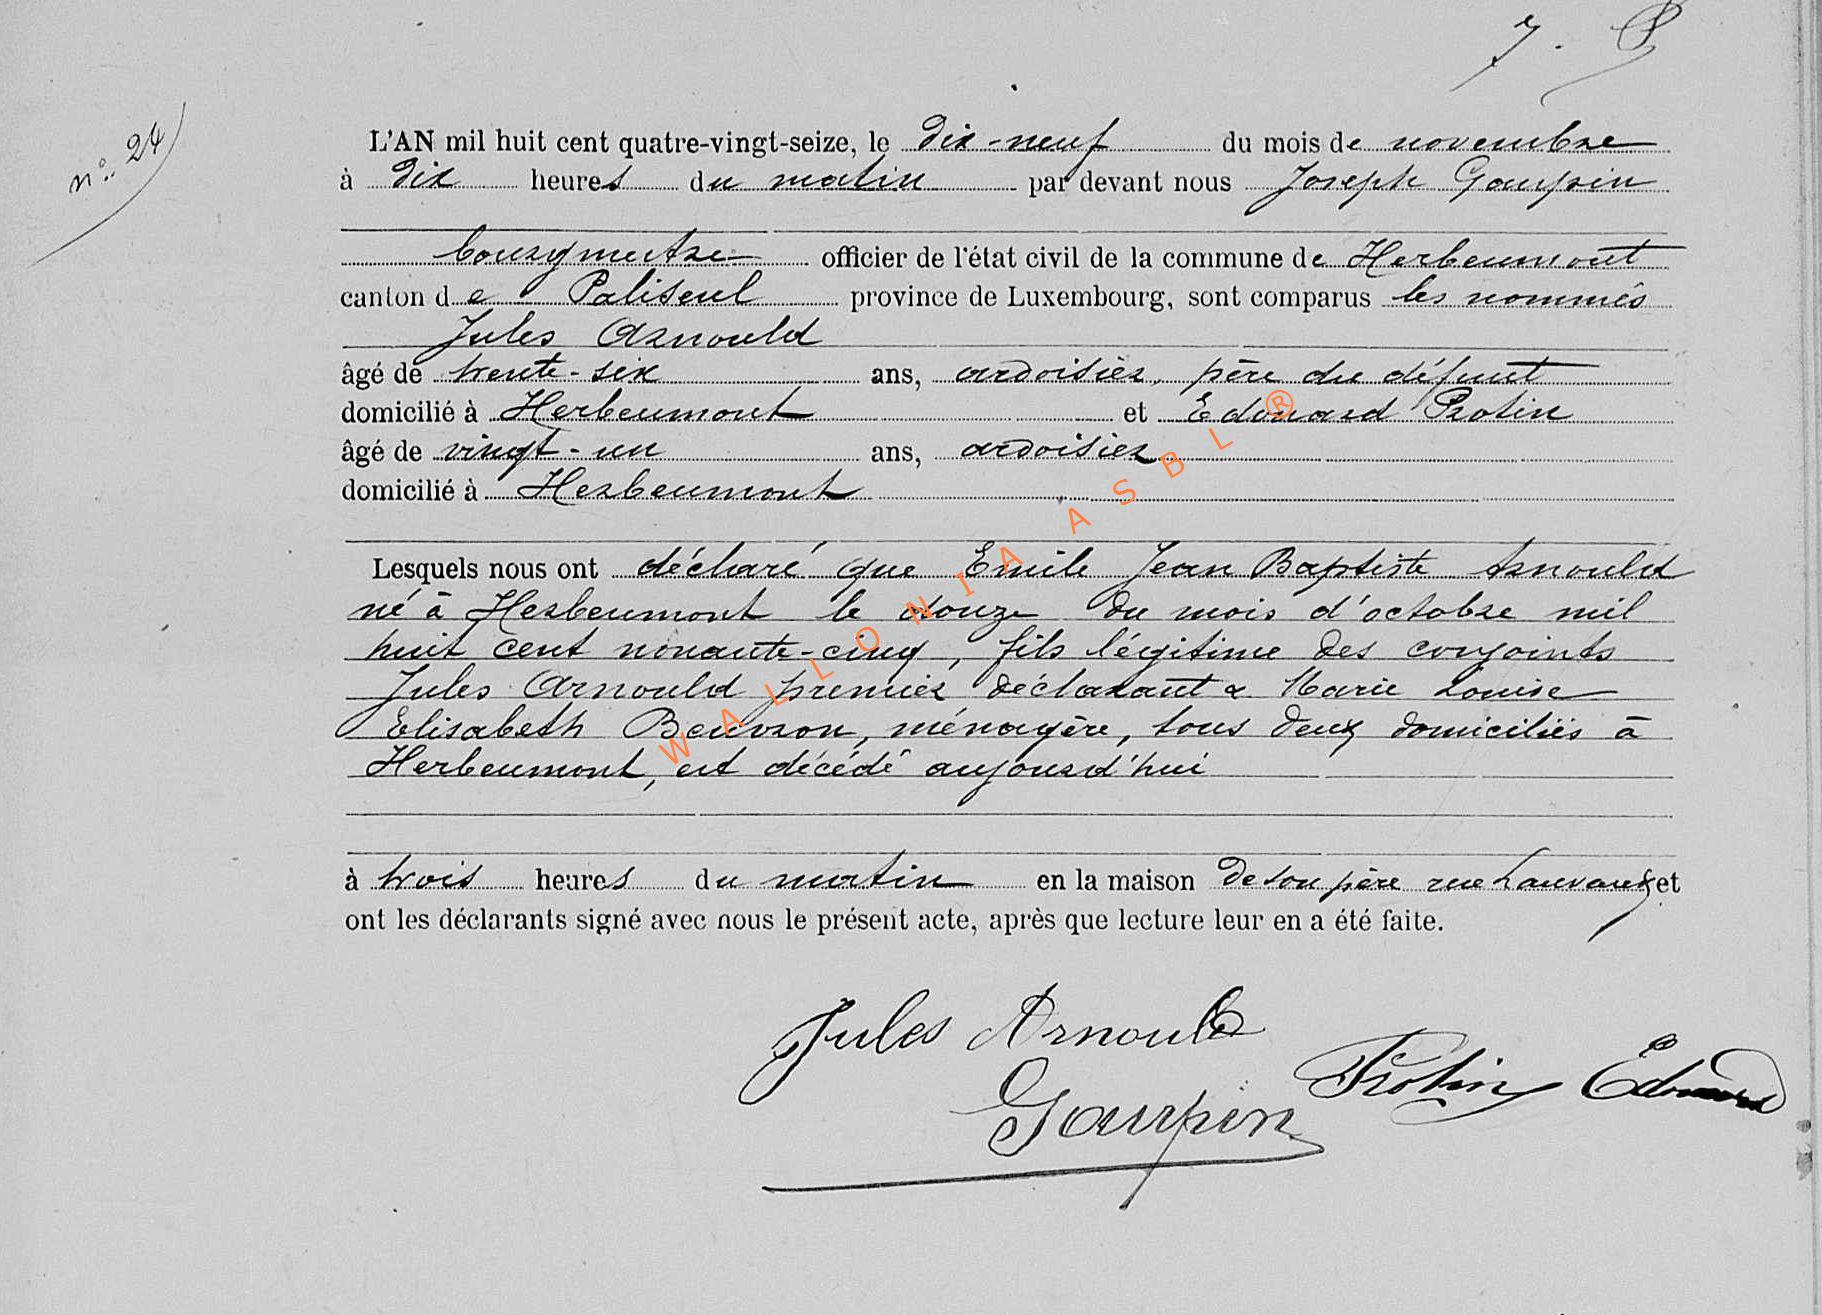 7. P
n° 24
L'AN mil huit cent quatre-vingt-seize, le dix-neuf du mois de novembre
à dix heures du matin par devant nous Joseph Gaupin
bourgmestre officier de l'état civil de la commune de Herbeumont
canton de Paliseul province de Luxembourg, sont comparus les nommés
Jules Arnould
âgé de trente-six ans, ardoisier, père du défunt
domicilié à Herbeumont et Edouard Protin
âgé de vingt-un ans, ardoisier
domicilié à Herbeumont
Lesquels nous ont déclaré que Emile Jean Baptiste Arnould
né à Herbeumont le douze du mois d'octobre mil
huit cent nonante-cinq, fils légitime des conjoints
Jules Arnould premier déclarant & Marie Louise
Elisabeth Beuvron, ménagère, tous deux domiciliés à
Herbeumont, est décédé aujourd'hui
à trois heures du matin en la maison de son père rue Lauvaux et
ont les déclarants signé avec nous le présent acte, après que lecture leur en a été faite.
Jules Arnould
Protin Edouard
Gaupin
WALLONIA ASBL ®